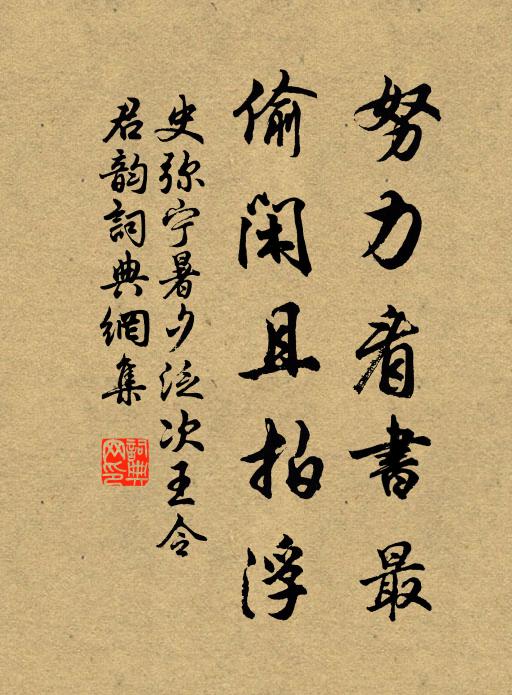 努力看書最
偷閑且拍浮
史弥宁暑夕泛次王令
君韵詞典網集
詞典網印